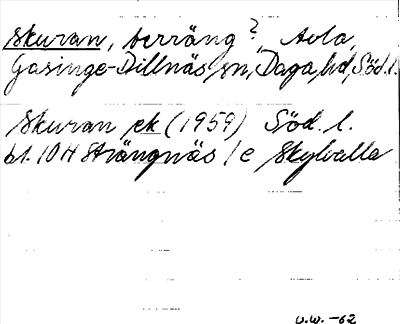 Skuran, terräng? Avla,
Gåsinge-Dillnäs sn, Daga hd, Söd. l.
Skuran ek (1959) Söd. l.
bl. 10H Strängnäs 1c Skylvalla
U.W. -62